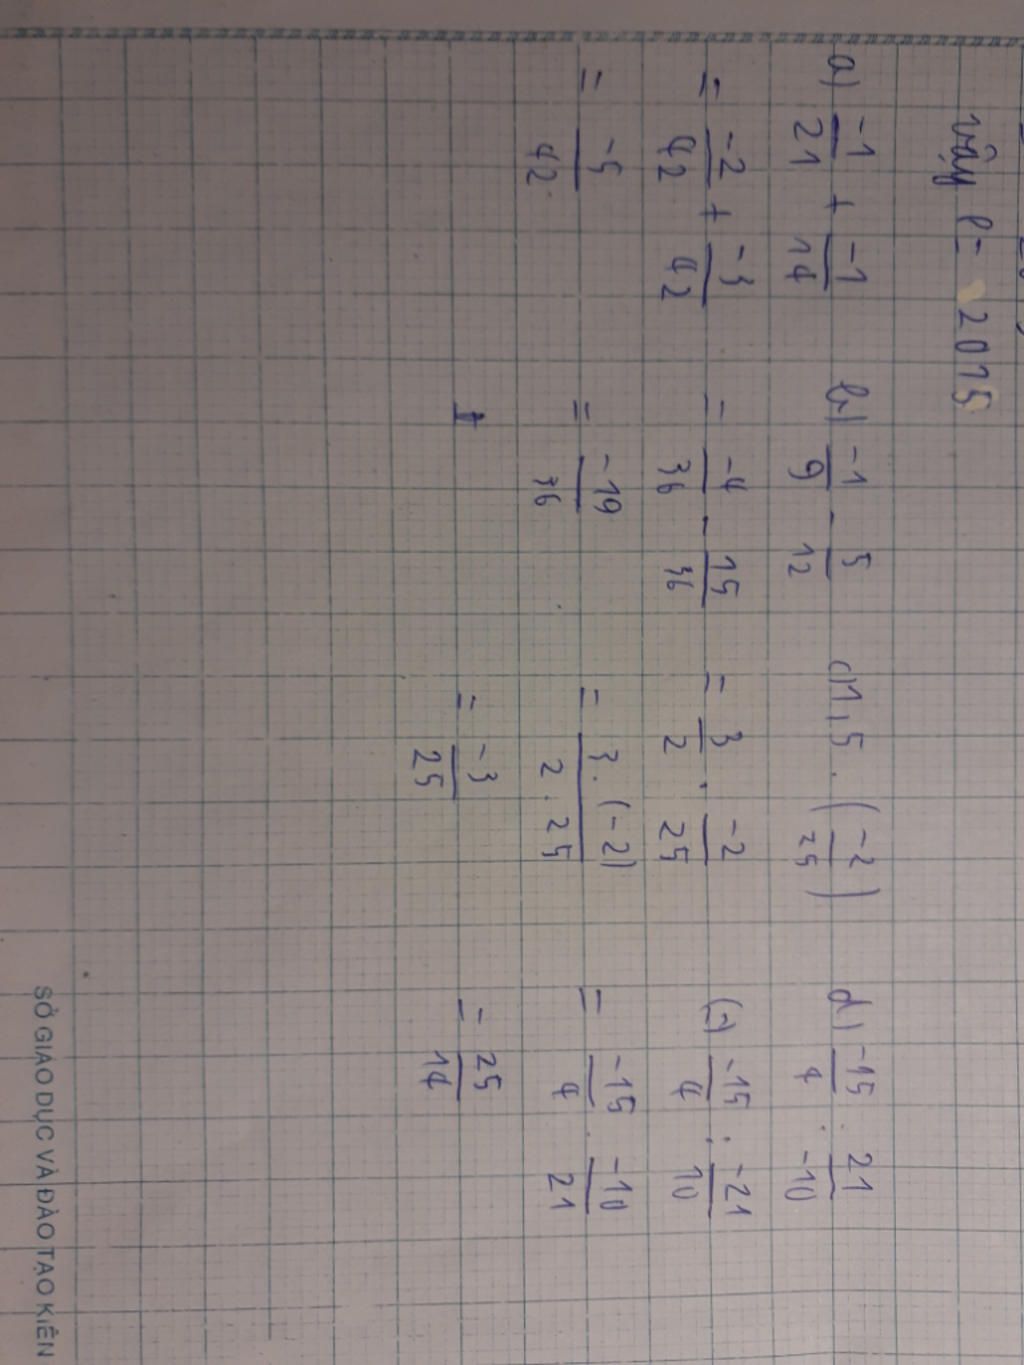 vậy P = 2015
a) -1/21 + -1/14
= -2/42 + -3/42
= -5/42
b) -1/9 - 5/12
= -4/36 - 15/36
= -19/36
c) 1,5 . (-2/25)
= 3/2 . -2/25
= 3 . (-2)/2 . 25
= -3/25
d) -15/4 : 21/-10
(=) -15/4 : -21/10
= -15/4 . -10/21
= 25/14
SỞ GIÁO DỤC VÀ ĐÀO TẠO KIÊN